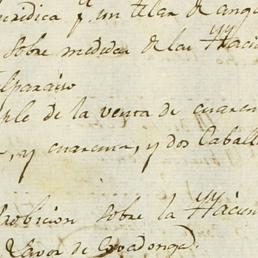 juridica y un telar de ango
sobre medidas de las Haci
lparaiso
ple de la venta de cuaren
, y cuarenta, y dos Caball
robicion sobre la Hacien
favor de Covadonga.